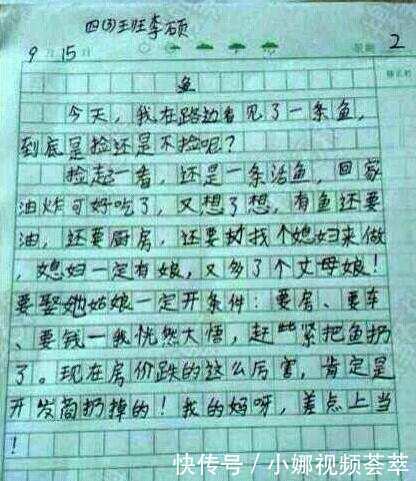 四(3)班李硕
9月15日 星期2
鱼
今天，我在路边看见了一条鱼，
到底是捡还是不捡呢？
捡起一看，还是一条活鱼，回家
油炸可好吃了，又想了想，有鱼还要
油，还要厨房，还要找个媳妇来做
，媳妇一定有娘，又多了个丈母娘！
要娶她姑娘一定开条件：要房、要车
、要钱一我恍然大悟，赶紧把鱼扔
了。现在房价跌的这么厉害，肯定是
开发商扔掉的！我的妈呀，差点上当
！
快传号／小娜视频荟萃